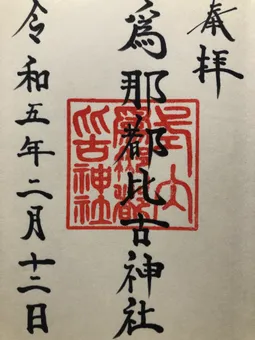 奉拝
爲那都比古神社
令和五年二月十二日
比古神社